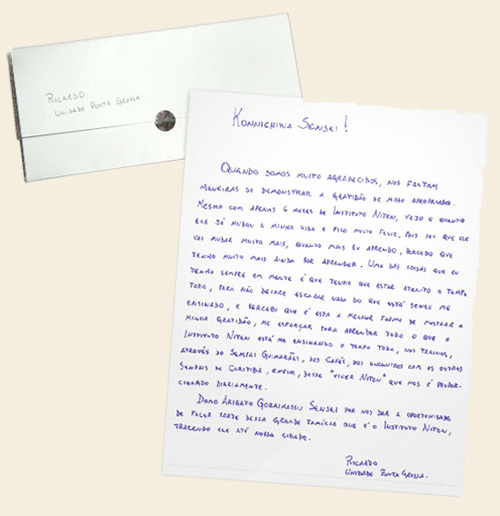 Ricardo
Unidade Ponta Grossa
Konnichiwa Sensei!
Quando somos muito agradecidos, nos faltam
maneiras de demonstrar a gratidão de modo apropriado.
Mesmo com apenas 6 meses de Instituto Niten, vejo o quanto
ele já mudou a minha vida e fico muito feliz, pois sei que ele
vai mudar muito mais, quanto mais eu aprendo, percebo que
tenho muito mais ainda por aprender. Uma das coisas que eu
tenho sempre em mente é que tenho que estar atento o tempo
todo, para não deixar escapar nada do que está sendo me
ensinado, e percebi que é esta a melhor forma de mostrar a
minha gratidão, me esforçar para aprender tudo o que o
Instituto Niten está me ensinando o tempo todo, nos treinos,
através do Sempai Guimarães, dos Cafés, dos encontros com os outros
Senpais de Curitiba, enfim, desse "viver Niten" que nos é propor-
cionado diariamente.
Domo Arigato Gozaimassu Sensei por nos dar a oportunidade
de fazer parte dessa grande família que é o Instituto Niten,
trazendo ele até nossa cidade.
Ricardo
Unidade Ponta Grossa.